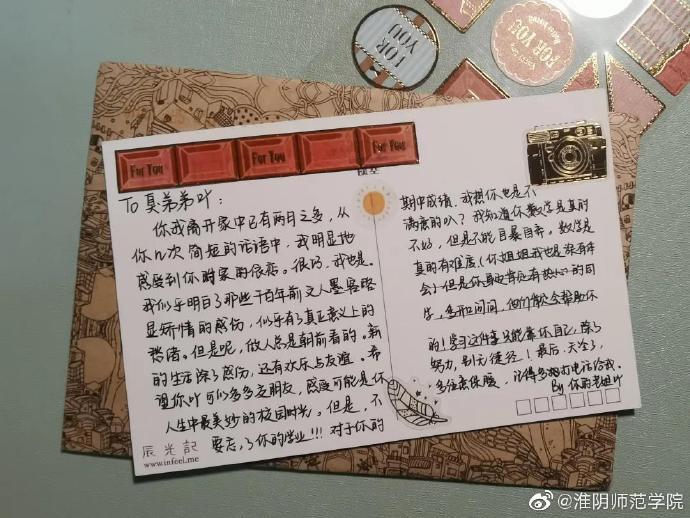 FOR YOU
FOR YOU
For You
For You
For You
To 臭弟弟吖:
你我离开家中已有两月之多,从
你几次简短的话语中,我明显地
感受到你对家的依恋。很巧,我也是。
我似乎明白了那些千百年前文人墨客略
显矫情的感伤,似乎有了真正意义上的
愁绪。但是呢,做人总是朝前看的。新
的生活除了感伤,还有欢乐与友谊。希
望你吖可以多多交朋友,感受可能是你
人生中最美妙的校园时光。但是,不
要忘了你的学业!!!对于你的
期中成绩,我想你也是不
满意的叭?我知道你数学是真的
不好,但是不能自暴自弃。数学是
真的有难度(你姐姐我也是
会)但是你身边肯定有热心的同
学,多和问问,他们都会帮助你
的!学习这件事只能靠你自己,除了
努力,别无捷径!最后,天冷了,
多注意保暖,记得多打电话给我。
By 你的老姐吖
辰光記
www.infeel.me
@淮阴师范学院